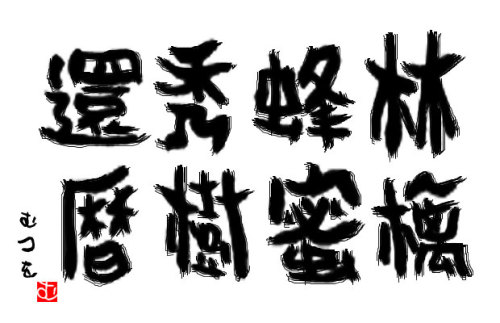 林檎
蜂蜜
秀樹
還暦
むつを
む